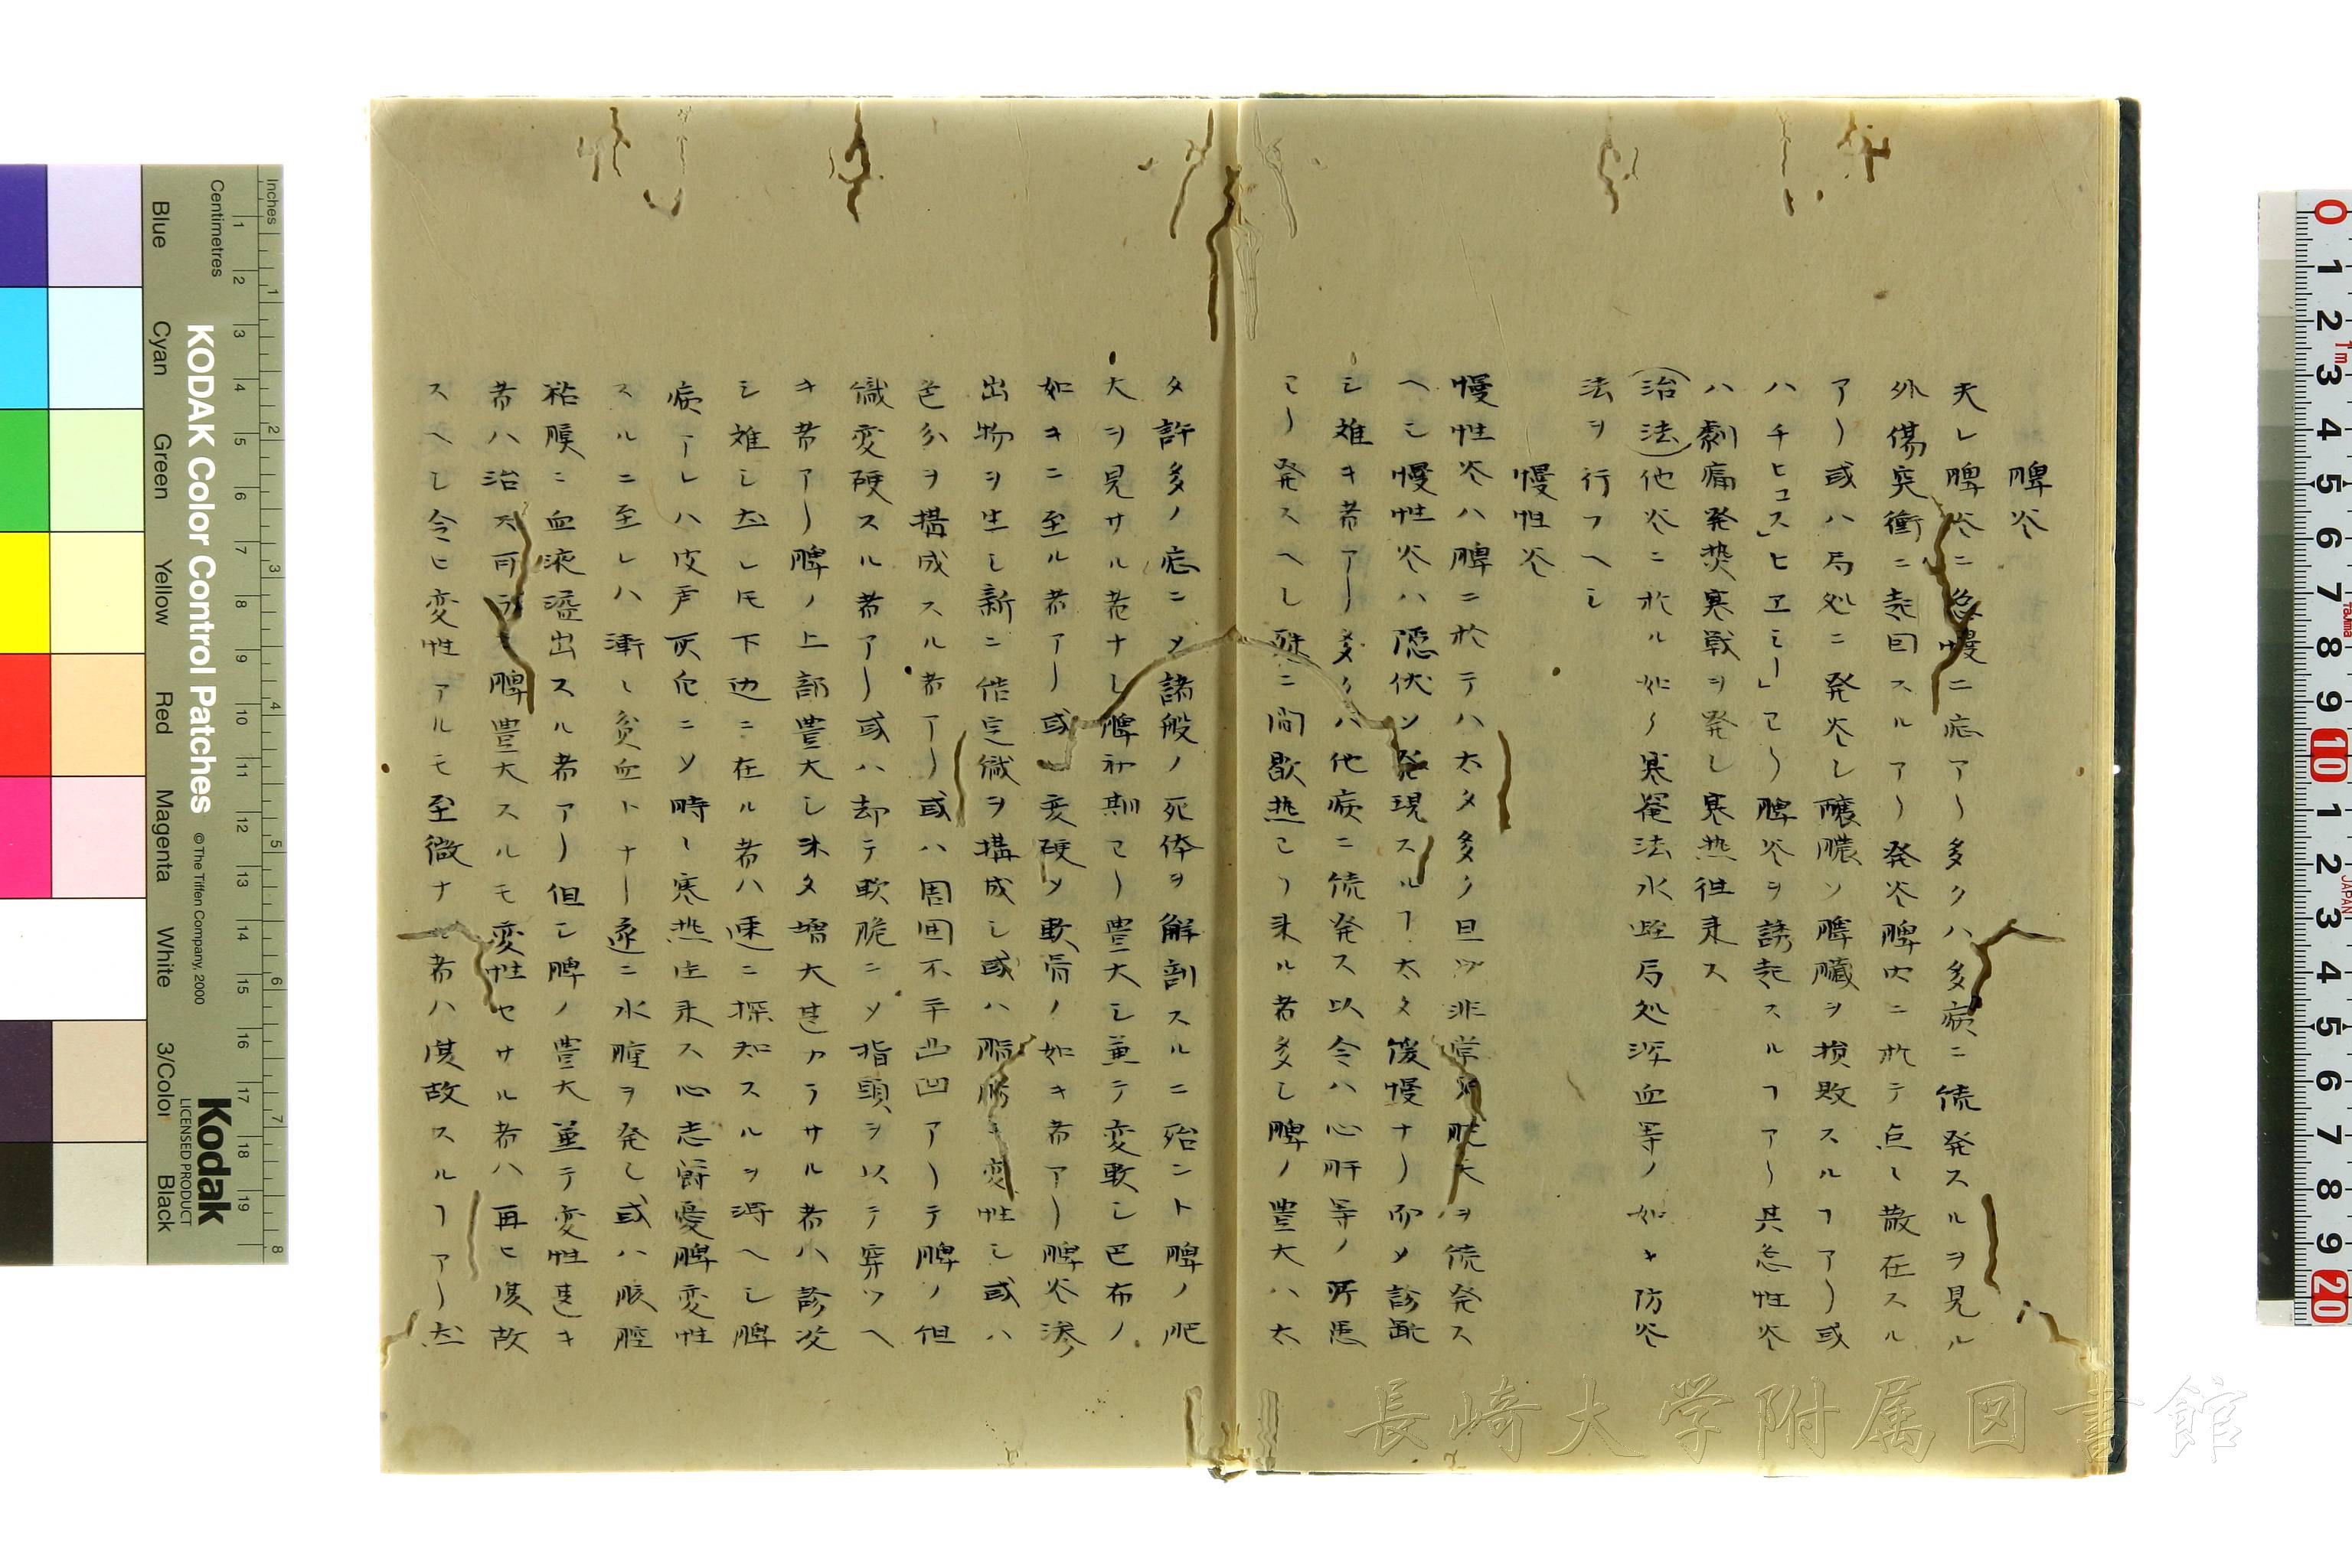 脾炎
夫レ脾炎ニ急慢ニ症アリ多クハ多病ニ続発スルヲ見ル
外傷突衝ニ起因スルアリ発炎脾内ニ於テ点々散在スル
アリ或ハ局処ニ発炎シ醸膿ソ脾臓ヲ損敗スルヿアリ或
ハチヒコス」ヒヱミー」ヨリ脾炎ヲ誘起スルヿアリ其急性炎
ハ劇痛発熱寒戦ヲ発シ寒熱往来ス
(治法)他炎ニ於ル如ク寒罨法水蛭局処瀉血等ノ如キ防炎
法ヲ行フヘシ
慢性炎
慢性炎ハ脾ニ於テハ太タ多ク且ツ非常ノ肥大ヲ続発ス
ヘシ慢性炎ハ隠伏ソ発現スルヿ太タ緩慢ナリ而ソ診
シ難キ者アリ多クハ他病ニ続発ス以令ハ心肝等ノ所患
ヨリ発スヘシ殊ニ間歇熱ヨリ来ル者多シ脾ノ豊大ハ太
タ許多ノ症ニソ諸般ノ死体ヲ解剖スルニ殆ント脾ノ肥
大ヲ見サル者ナシ脾初期ヨリ豊大シ兼テ変軟シ巴布ノ
如キニ至ル者アリ或ハ変硬ソ軟骨ノ如キ者アリ脾炎滲
出物ヲ生シ新ニ結定織ヲ搆成シ或ハ脂肪ニ変性シ或ハ
色分ヲ搆成スル者アリ或ハ周囲不平凸凹アリテ脾ノ但
織変硬スル者アリ或ハ却テ軟脆ニソ指頭ヲ以テ穿ツヘ
キ者アリ脾ノ上部豊大シ未タ増大甚カラサル者ハ診定
シ難シ然レモ下辺ニ在ル者ハ速ニ探知スルヲ得ヘシ脾
病アレハ皮膚灰色ニソ時々寒熱往来ス心志欝憂脾変性
スルニ至レハ漸々貧血トナリ遂ニ水腫ヲ発シ或ハ腹腔
粘膜ニ血液溢出スル者アリ但シ脾ノ豊大並テ変性甚キ
者ハ治ス可ラス脾豊大スルモ変性セサル者ハ再ヒ復故
スヘシ令ヒ変性アルモ至微ナル者ハ復故スルヿアリ然
Inches
Centimetres
KODAK Color Control Patches
© The Tiffen Company, 2000
Blue
Cyan
Green
Yellow
Red
Magenta
White
3/Color
Black
Kodak
LICENSED PRODUCT
長崎大学附属図書館